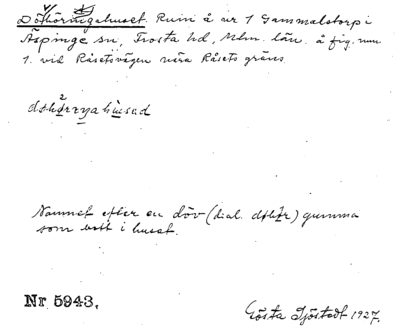 Döthöringehuset. Ruin å är 1 Gammalstorp i
Äspinge sn, Frosta hd, Mlm. län. å fig. num
1. vid Råsetsvägen nära Råsets gräns.
Namnet efter en döv (dial. ) gumma
som bott i huset.
Nr 5943.
Gösta Sjöstedt 1927.